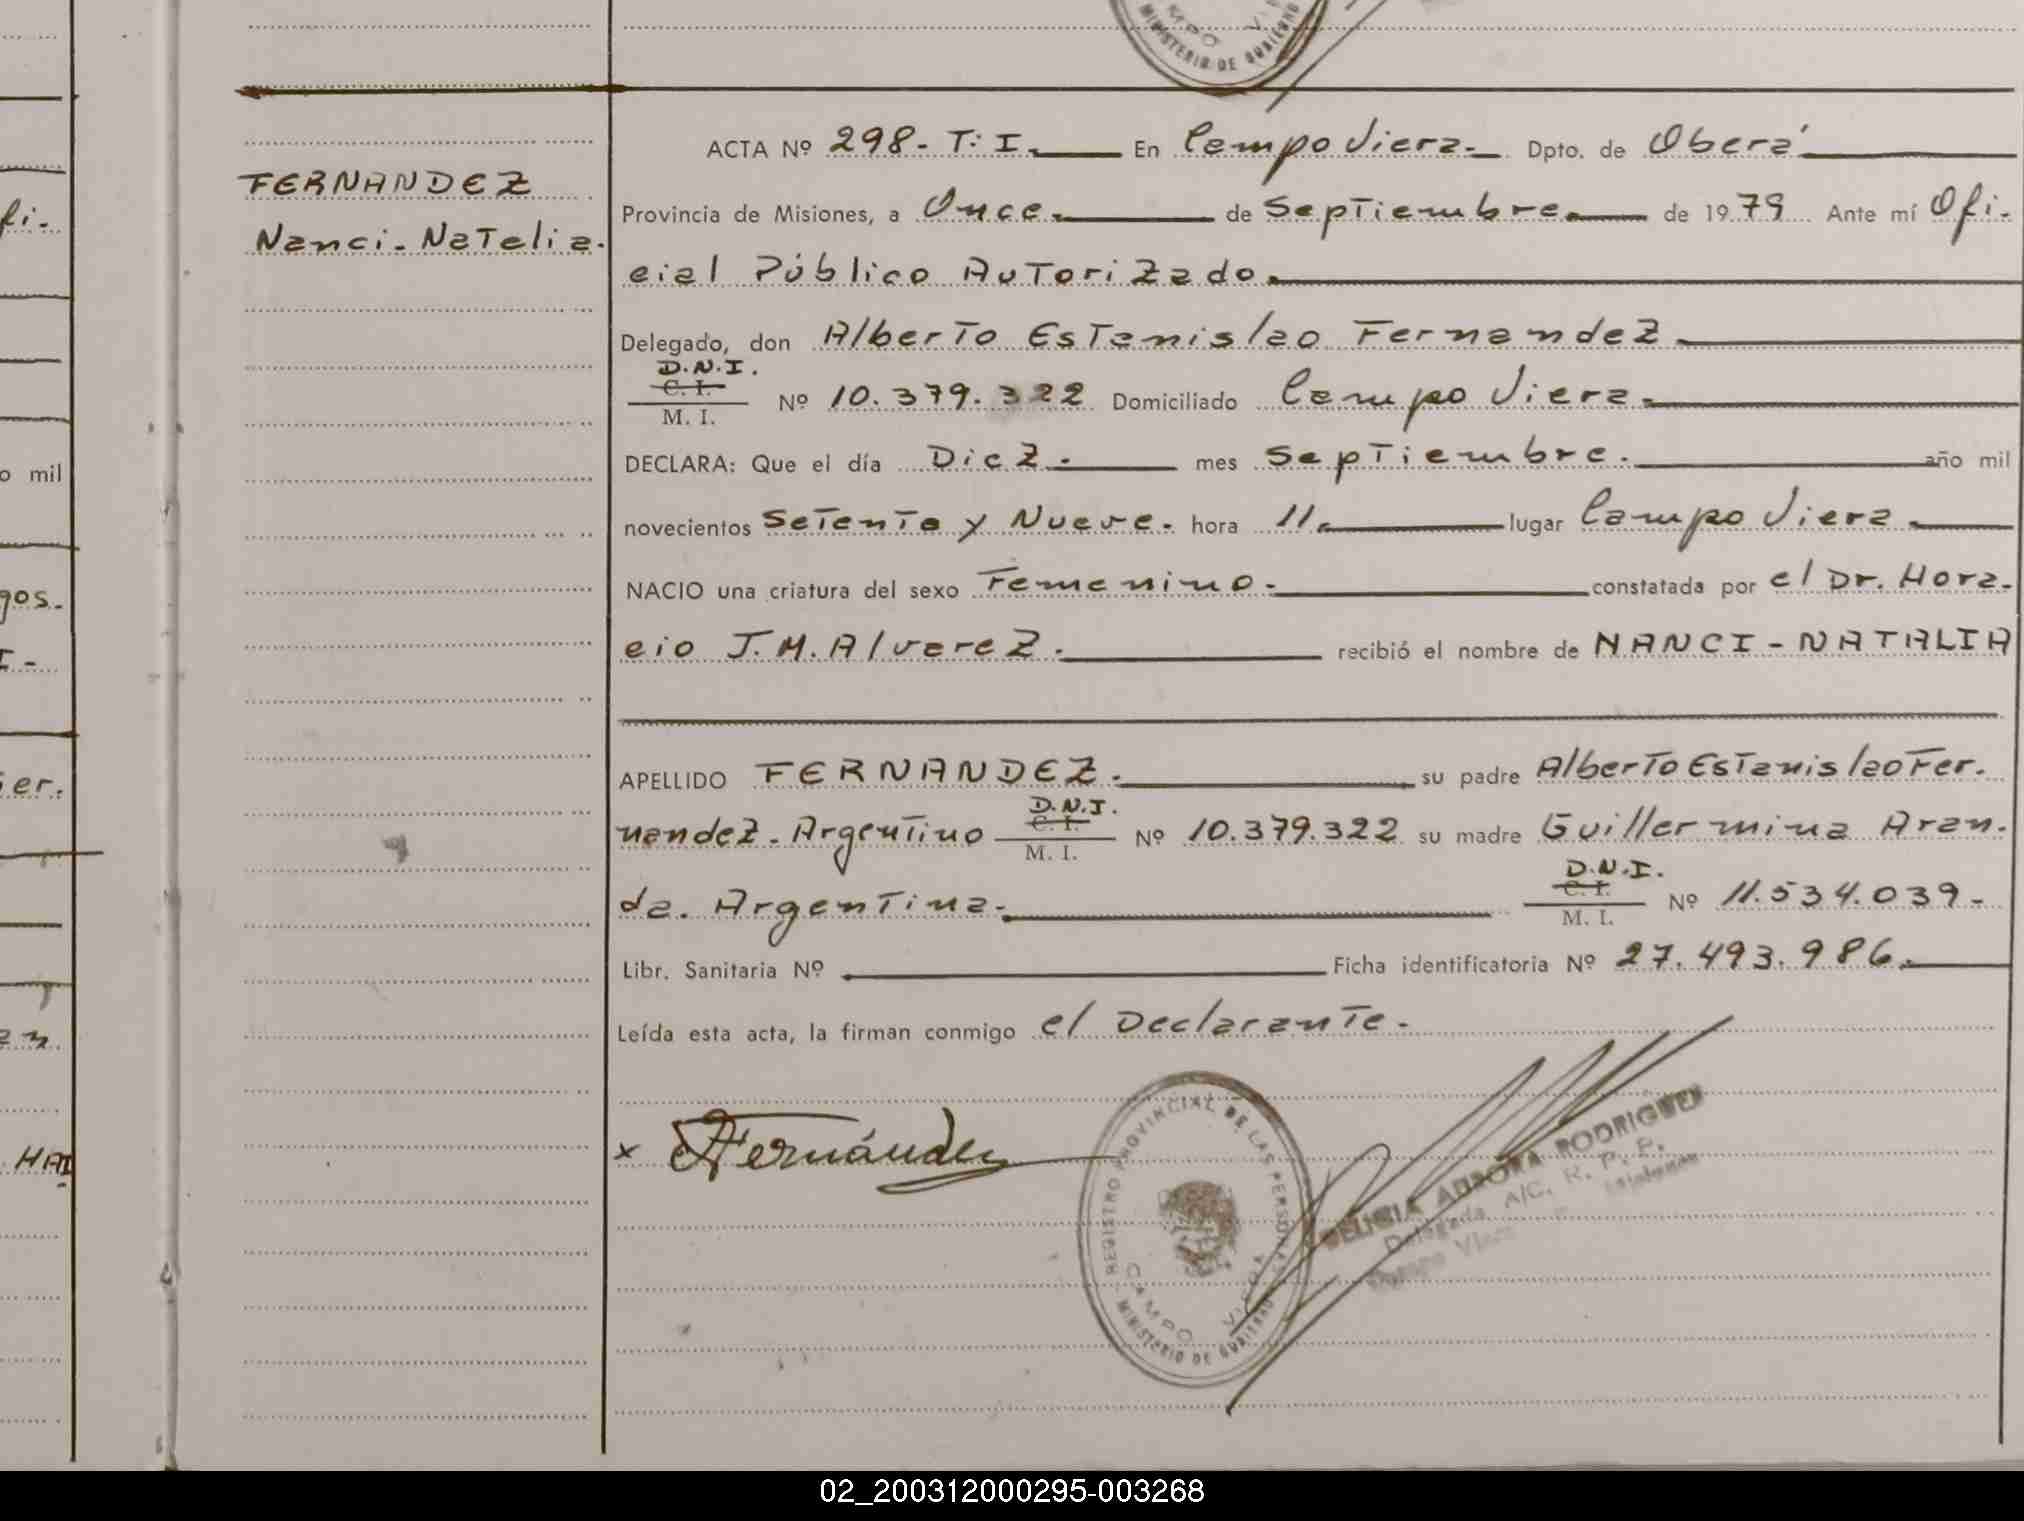 MINISTERIO DE GOBIERNO
ACTA Nº 298- T: I. En Campo Viera. Dpto. de Oberá
FERNANDEZ
Nanci-Natalia.
Provincia de Misiones, a Once. de Septiembre. de 1979 Ante mí Ofi-
cial Público Autorizado.
Delegado, don Alberto Estanislao Fernandez
D.N.I.
C. I.
M. I. Nº 10.379.322 Domiciliado Campo Viera.
DECLARA: Que el día Diez. mes Septiembre. año mil
novecientos Setenta y Nueve. hora 11. lugar Campo Viera
NACIO una criatura del sexo Femenino. constatada por el Dr. Hora-
cio J.M.Alvarez. recibió el nombre de NANCI-NATALIA
APELLIDO FERNANDEZ. su padre Alberto Estanislao Fer.
nandez. Argentino D.N.I. C. I. M. I. Nº 10.379.322 su madre Guillermina Aran.
da. Argentina. D.N.I. C. I. M. I. Nº 11.534.039-
Libr. Sanitaria Nº Ficha identificatoria Nº 27.493.986.
Leída esta acta, la firman conmigo el Declarante.
x Fernández
REGISTRO PROVINCIAL DE LAS PERSONAS
CAMPO VIERA
MINISTERIO DE GOBIERNO
DELICIA AURORA RODRIGUEZ
Delegada A/C. R. P. P.
Campo Viera Misiones
fi-
o mil
gos-
I-
er.
an
HAI
02_200312000295-003268